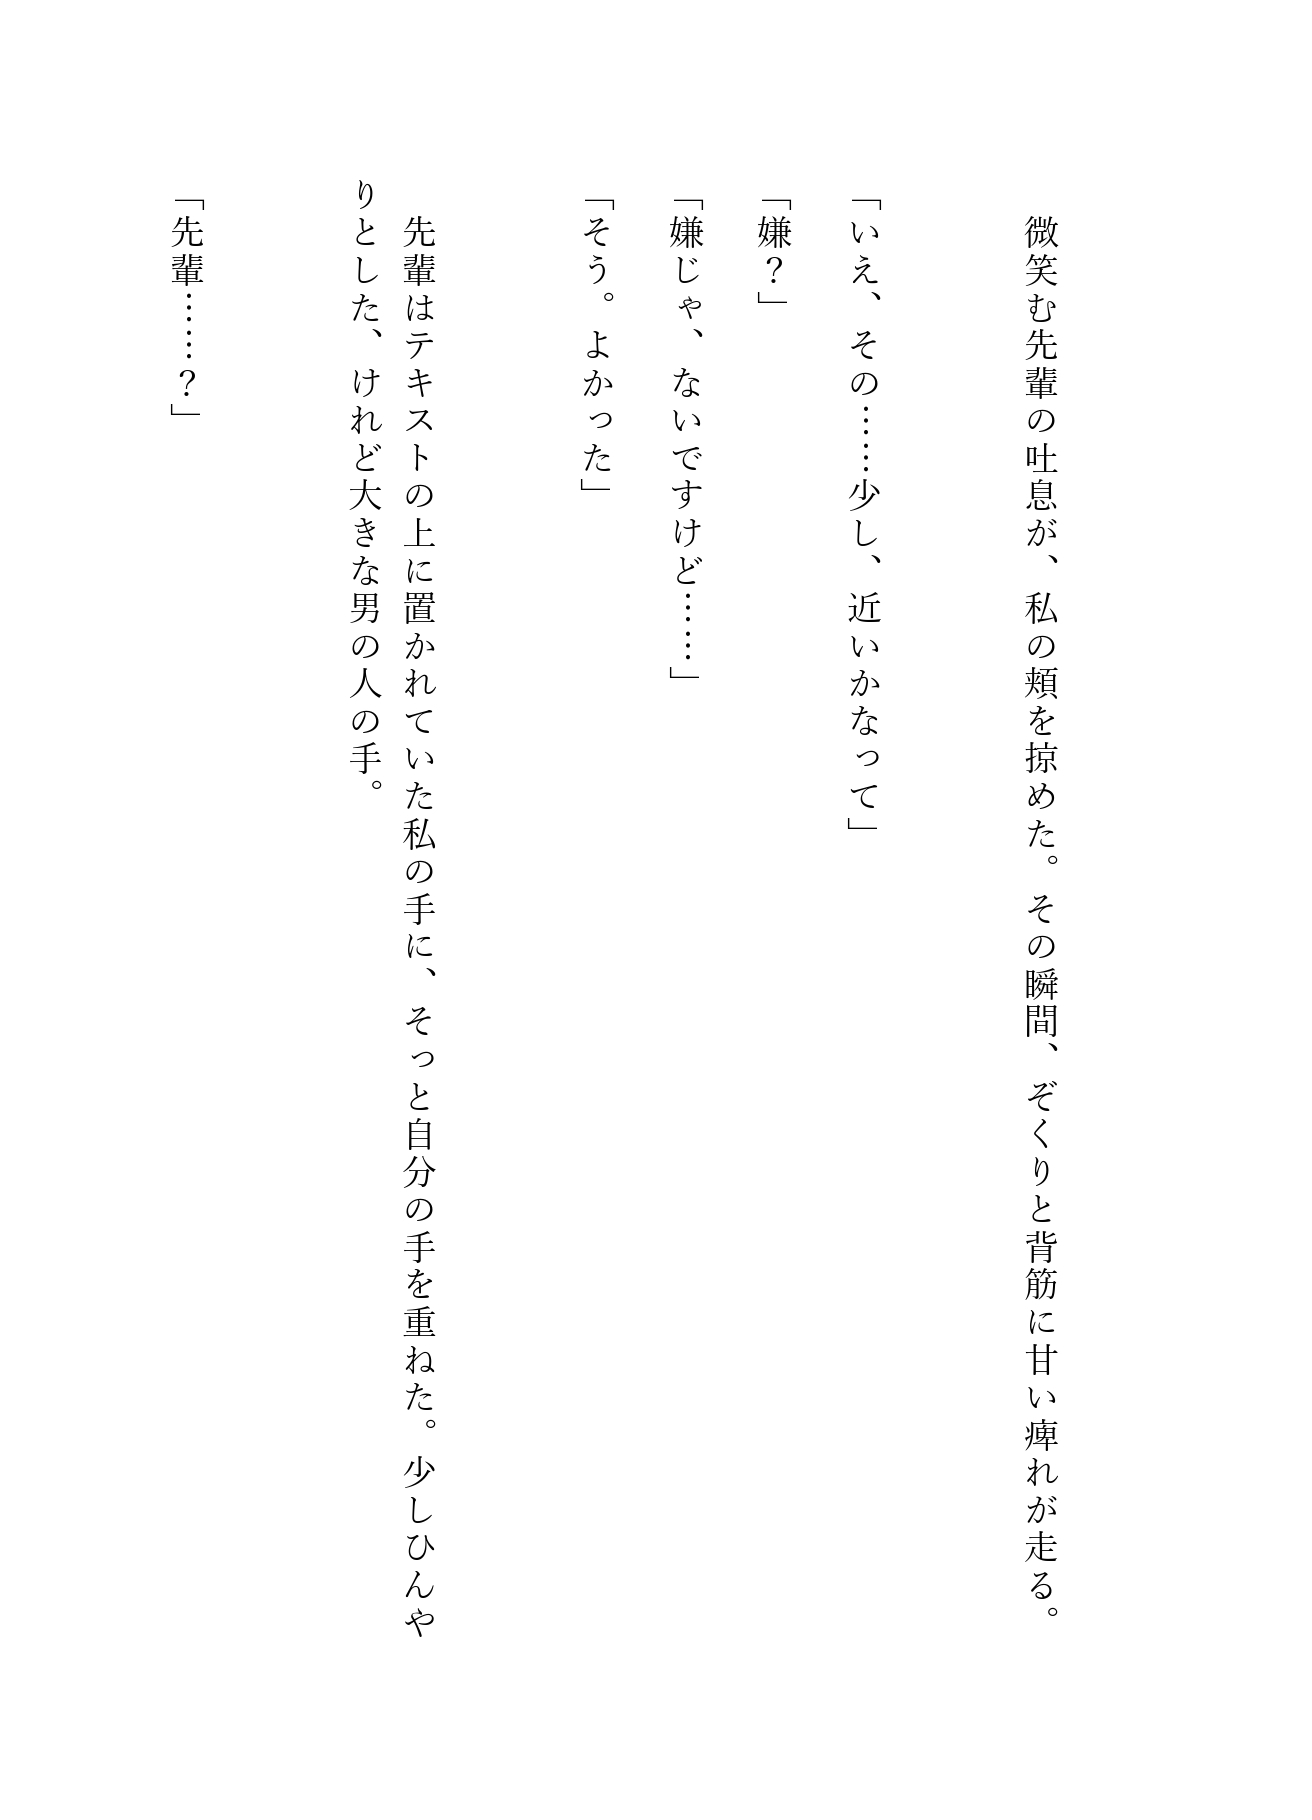 微笑む先輩の吐息が、私の頬を掠めた。その瞬間、ぞくりと背筋に甘い痺れが走る。
「いえ、その……少し、近いかなって」
「嫌？」
「嫌じゃ、ないですけど……」
「そう。よかった」
先輩はテキストの上に置かれていた私の手に、そっと自分の手を重ねた。少しひんや
りとした、けれど大きな男の人の手。
「先輩……？」